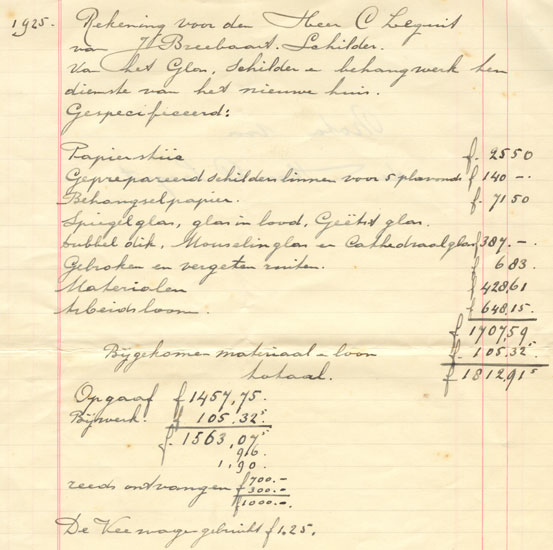 1925. Rekening voor den Heer C Leguit
van H Breebaart. Schilder.
Van het Glas, Schilder en behangwerk ten
dienste van het nieuwe huis.
Gespecificeerd:
Papiersteie f. 25 50
Geprepareerd schilderslinnen voor 5 plavonds f 140 -.
Behangselpapier. f. 71 50
Spiegelglas, glas in lood, Geëtst glas.
dubbel dik, Mouselinglas en Cathedraalglas f 387.-.
Gebroken en vergeten ruiten. f 6 83
Materialen f 428,61
Arbeidsloon. f 648.15.
f 1707,59
Bijgekomen materiaal en loon f. 105.32⁵
totaal. f 1812,91⁵
Opgaaf f 1457,75.
Bijwerk. f 105.32⁵
f. 1563,07⁵
96
1,90.
reeds ontvangen f 700.-
f 300.-
f 1000.-.
De Veewagen gebruikt f 1.25.